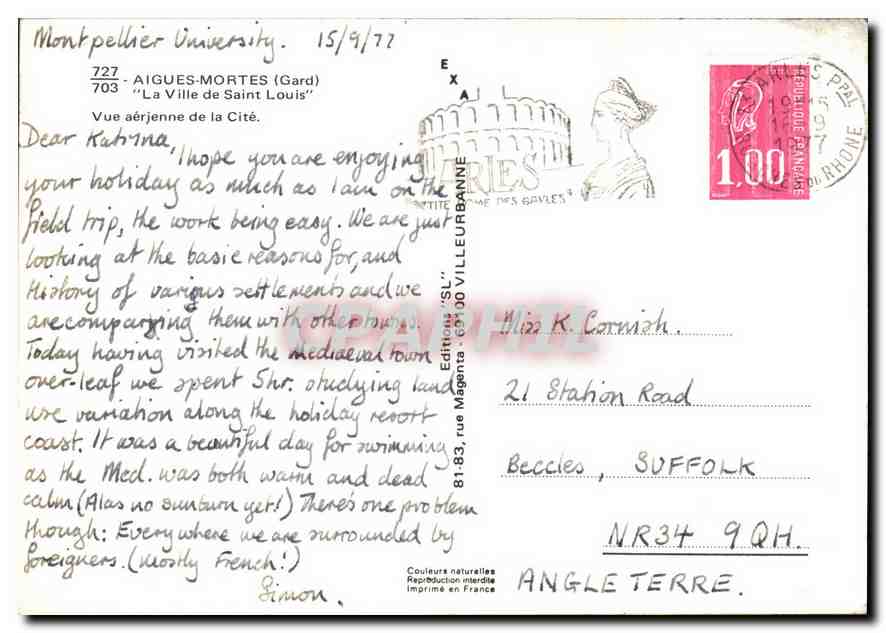 Montpellier University. 15/9/77
727
703 - AIGUES-MORTES (Gard)
"La Ville de Saint Louis"
Vue aérienne de la Cité.
Dear Katrina,
I hope you are enjoying
your holiday as much as I am on the
field trip, the work being easy. We are just
looking at the basic reasons for, and
History of various settlements and we
are comparying them with other towns.
Today having visited the mediaeval town
over-leaf we spent 5hr. studying land
use variation along the holiday resort
coast. It was a beautiful day for swimming
as the Med. was both warm and dead
calm (Alas no sunburn yet!) There's one problem
though: Everywhere we are surrounded by
foreigners. (mostly French!)
Simon.
EXA
Editions "SL"
81-83, rue Magenta - 69100 VILLEURBANNE
Couleurs naturelles
Reproduction interdite
Imprimé en France
ARLES
DES GAULES"
ARLES PPAL
1977
RHONE
REPUBLIQUE FRANÇAISE
1,00
Miss K. Cornish.
21 Station Road
Beccles, SUFFOLK
NR34 9QH.
ANGLETERRE.
CPAPHIL